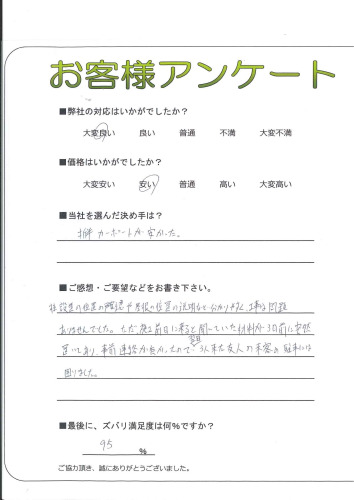 お客様アンケート
■弊社の対応はいかがでしたか？
大変良い　良い　普通　不満　大変不満
■価格はいかがでしたか？
大変安い　安い　普通　高い　大変高い
■当社を選んだ決め手は？
カーポートが安かった。
■ご感想・ご要望などをお書き下さい。
柱設置の位置の確認や屋根の位置の説明など分かりやすく、工事は問題
ありませんでした。ただ 前日に来ると聞いていた材料が3日前に突然
置いてあり、事前連絡が無かったので、翌日 3人来た友人の来客の駐車には
困りました。
■最後に、ズバリ満足度は何％ですか？
95 ％
ご協力頂き、誠にありがとうございました。